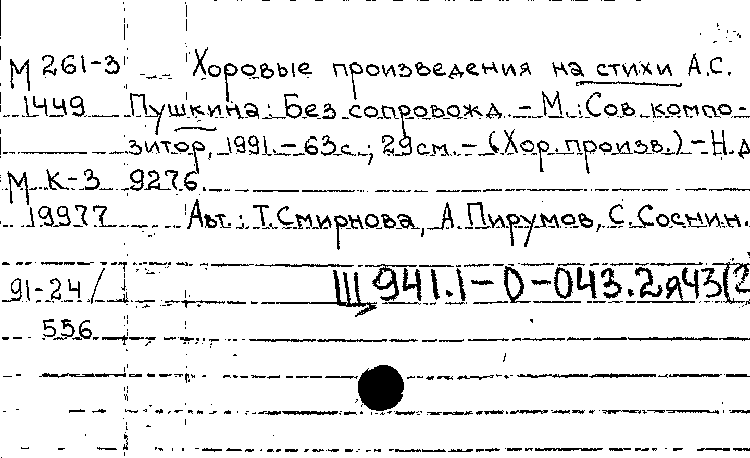 М 261-3 Хоровые произведения на стихи А.С.
1449 Пушкина: Без сопровожд. – М.: Сов. компо-
зитор, 1991. – 63с.; 29см. – (Хор. произв.) – Н.д.
М К-3 9276.
19977 Авт.: Т. Смирнова, А. Пирумов, С. Соснин.
91-24/ Ш 941.1-0-043.2я43(2
556